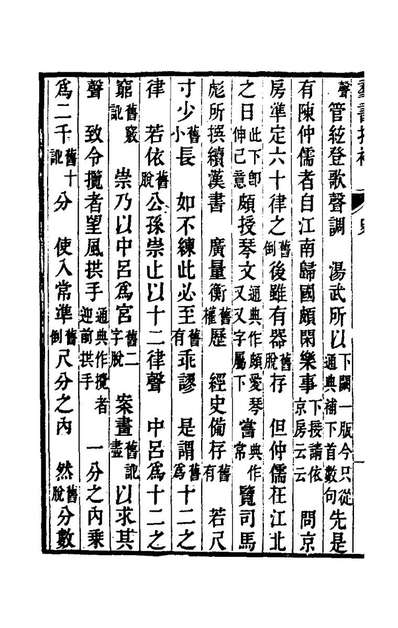 羣書拾補
聲 管絃登歌聲調 湯武所以下闕一版今只從通典補下首數句先是
有陳仲儒者自江南歸國頗閑樂事下接請依京房云云 問京
房準定六十律之舊倒後雖有器舊脫存 但仲儒在江北
之日此下卽伸己意 頗授琴文通典作頗愛琴又又字屬下 嘗典作常覽司馬
彪所撰續漢書 廣量衡舊權歷 經史備存舊有 若尺
寸少舊小長 如不練此必至舊有乖謬 是謂舊爲十二之
律 若依舊脫公孫崇止以十二律聲 中呂爲十二之
窮舊竅訛 崇乃以中呂爲宮舊二字脫 案畫舊訛盡以求其
聲 致令攬者望風拱手通典作攬者迎前拱手 一分之內乘
爲二千舊十訛分 使入常準舊倒尺分之內 然舊脫分數